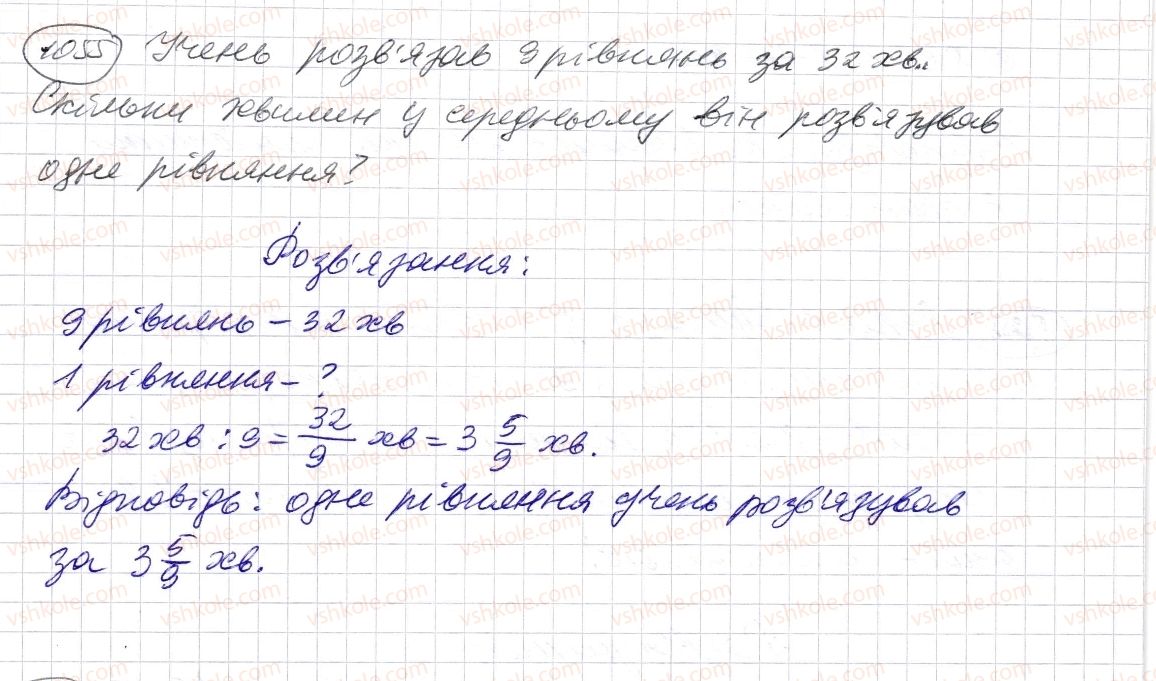 1055 Учень розв'язав 9 рівнянь за 32 хв.
Скільки хвилин у середньому він розв'язував
одне рівняння?
Розв'язання:
9 рівнянь – 32 хв
1 рівняння – ?
32 хв : 9 = 32/9 хв = 3 5/9 хв.
Відповідь: одне рівняння учень розв'язував
за 3 5/9 хв.
vshkole.com